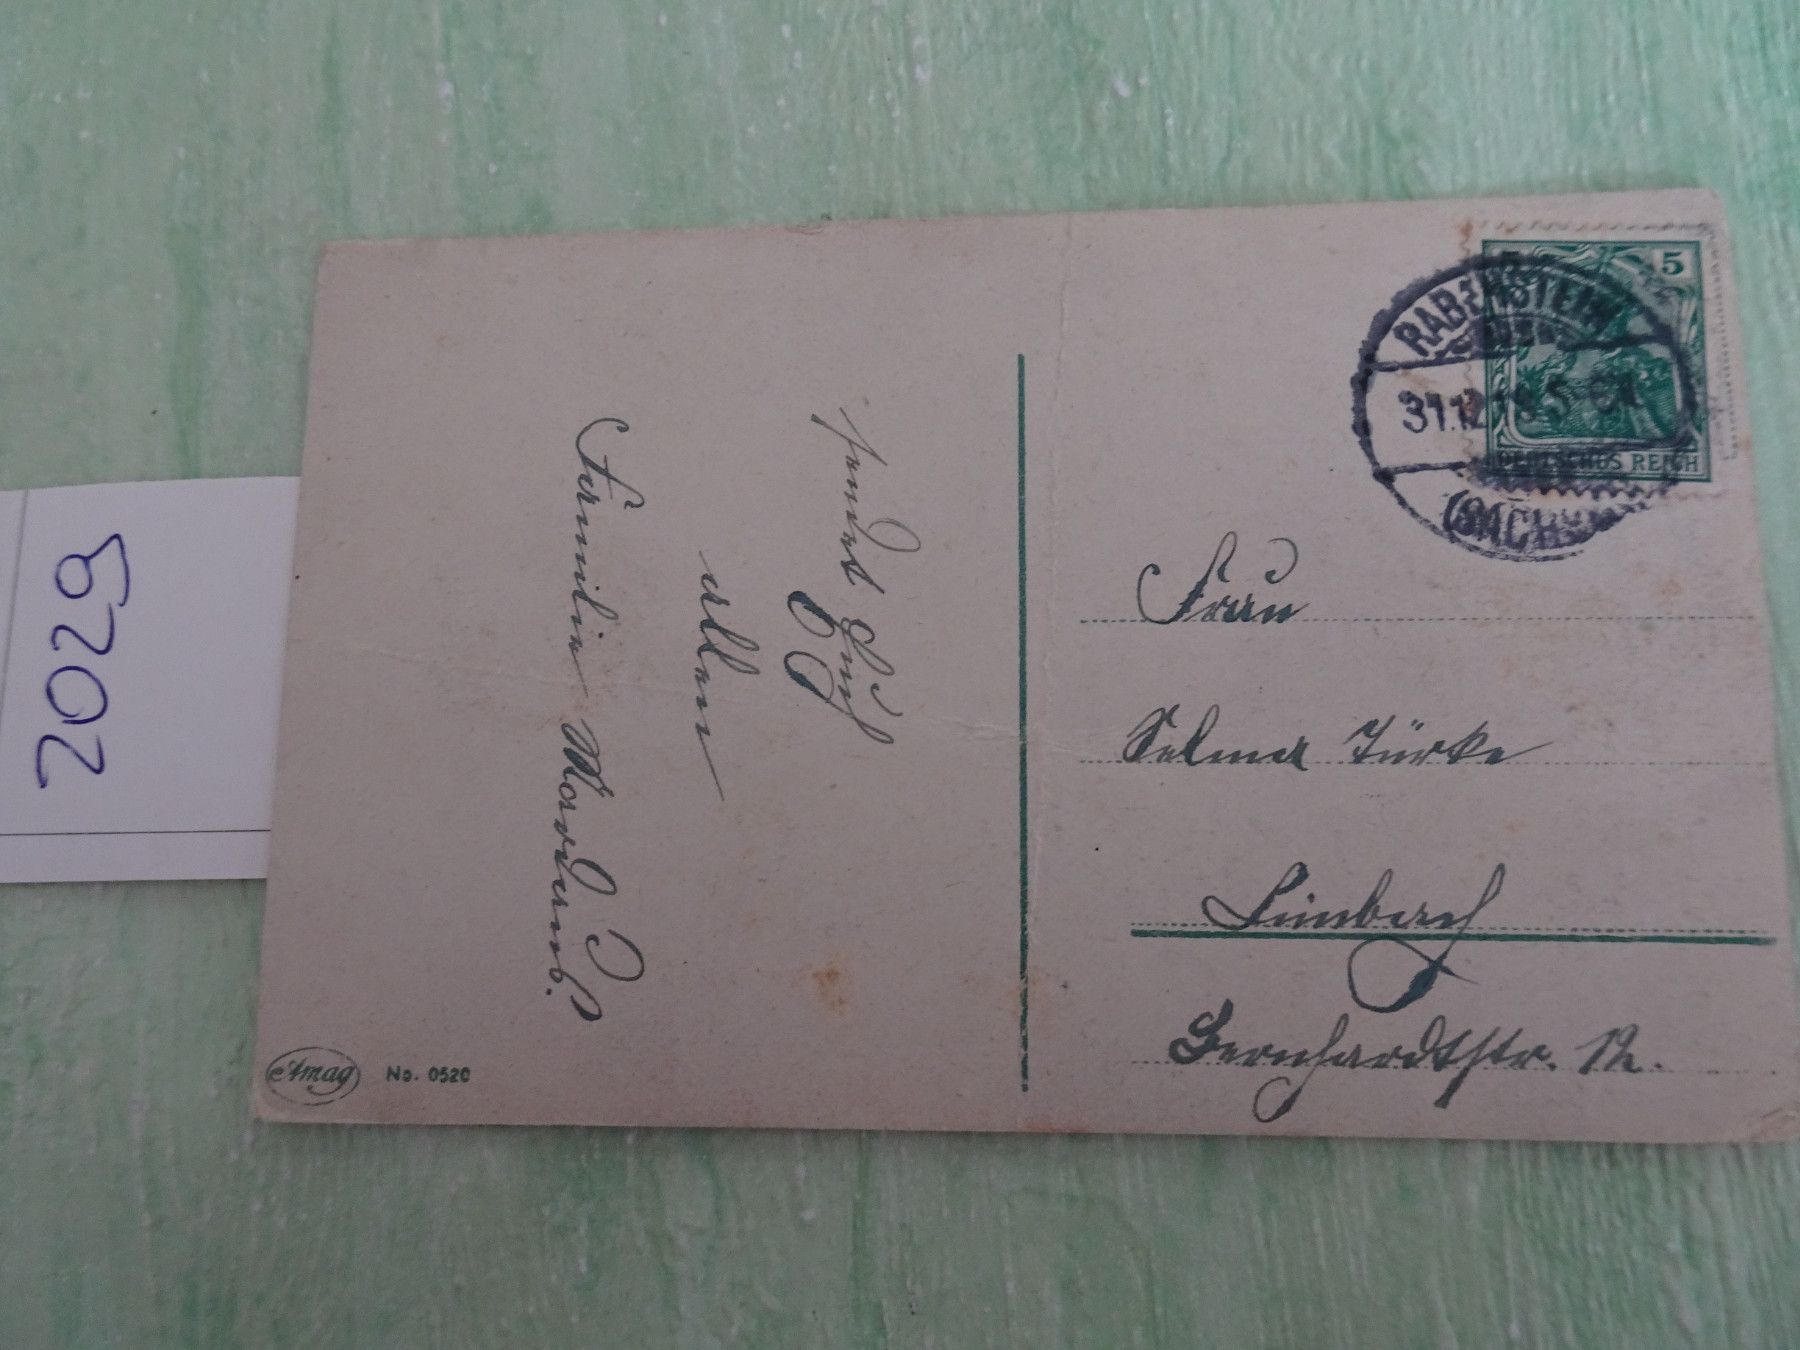 2029
sendet Euch
allen
Familie
Amag No. 0520
5
DEUTSCHES REICH
RABENSTEIN
31.12
5-6N
(SACHSEN)
Frau
Selma Türke
Limbach
Bernhardtstr. 12.